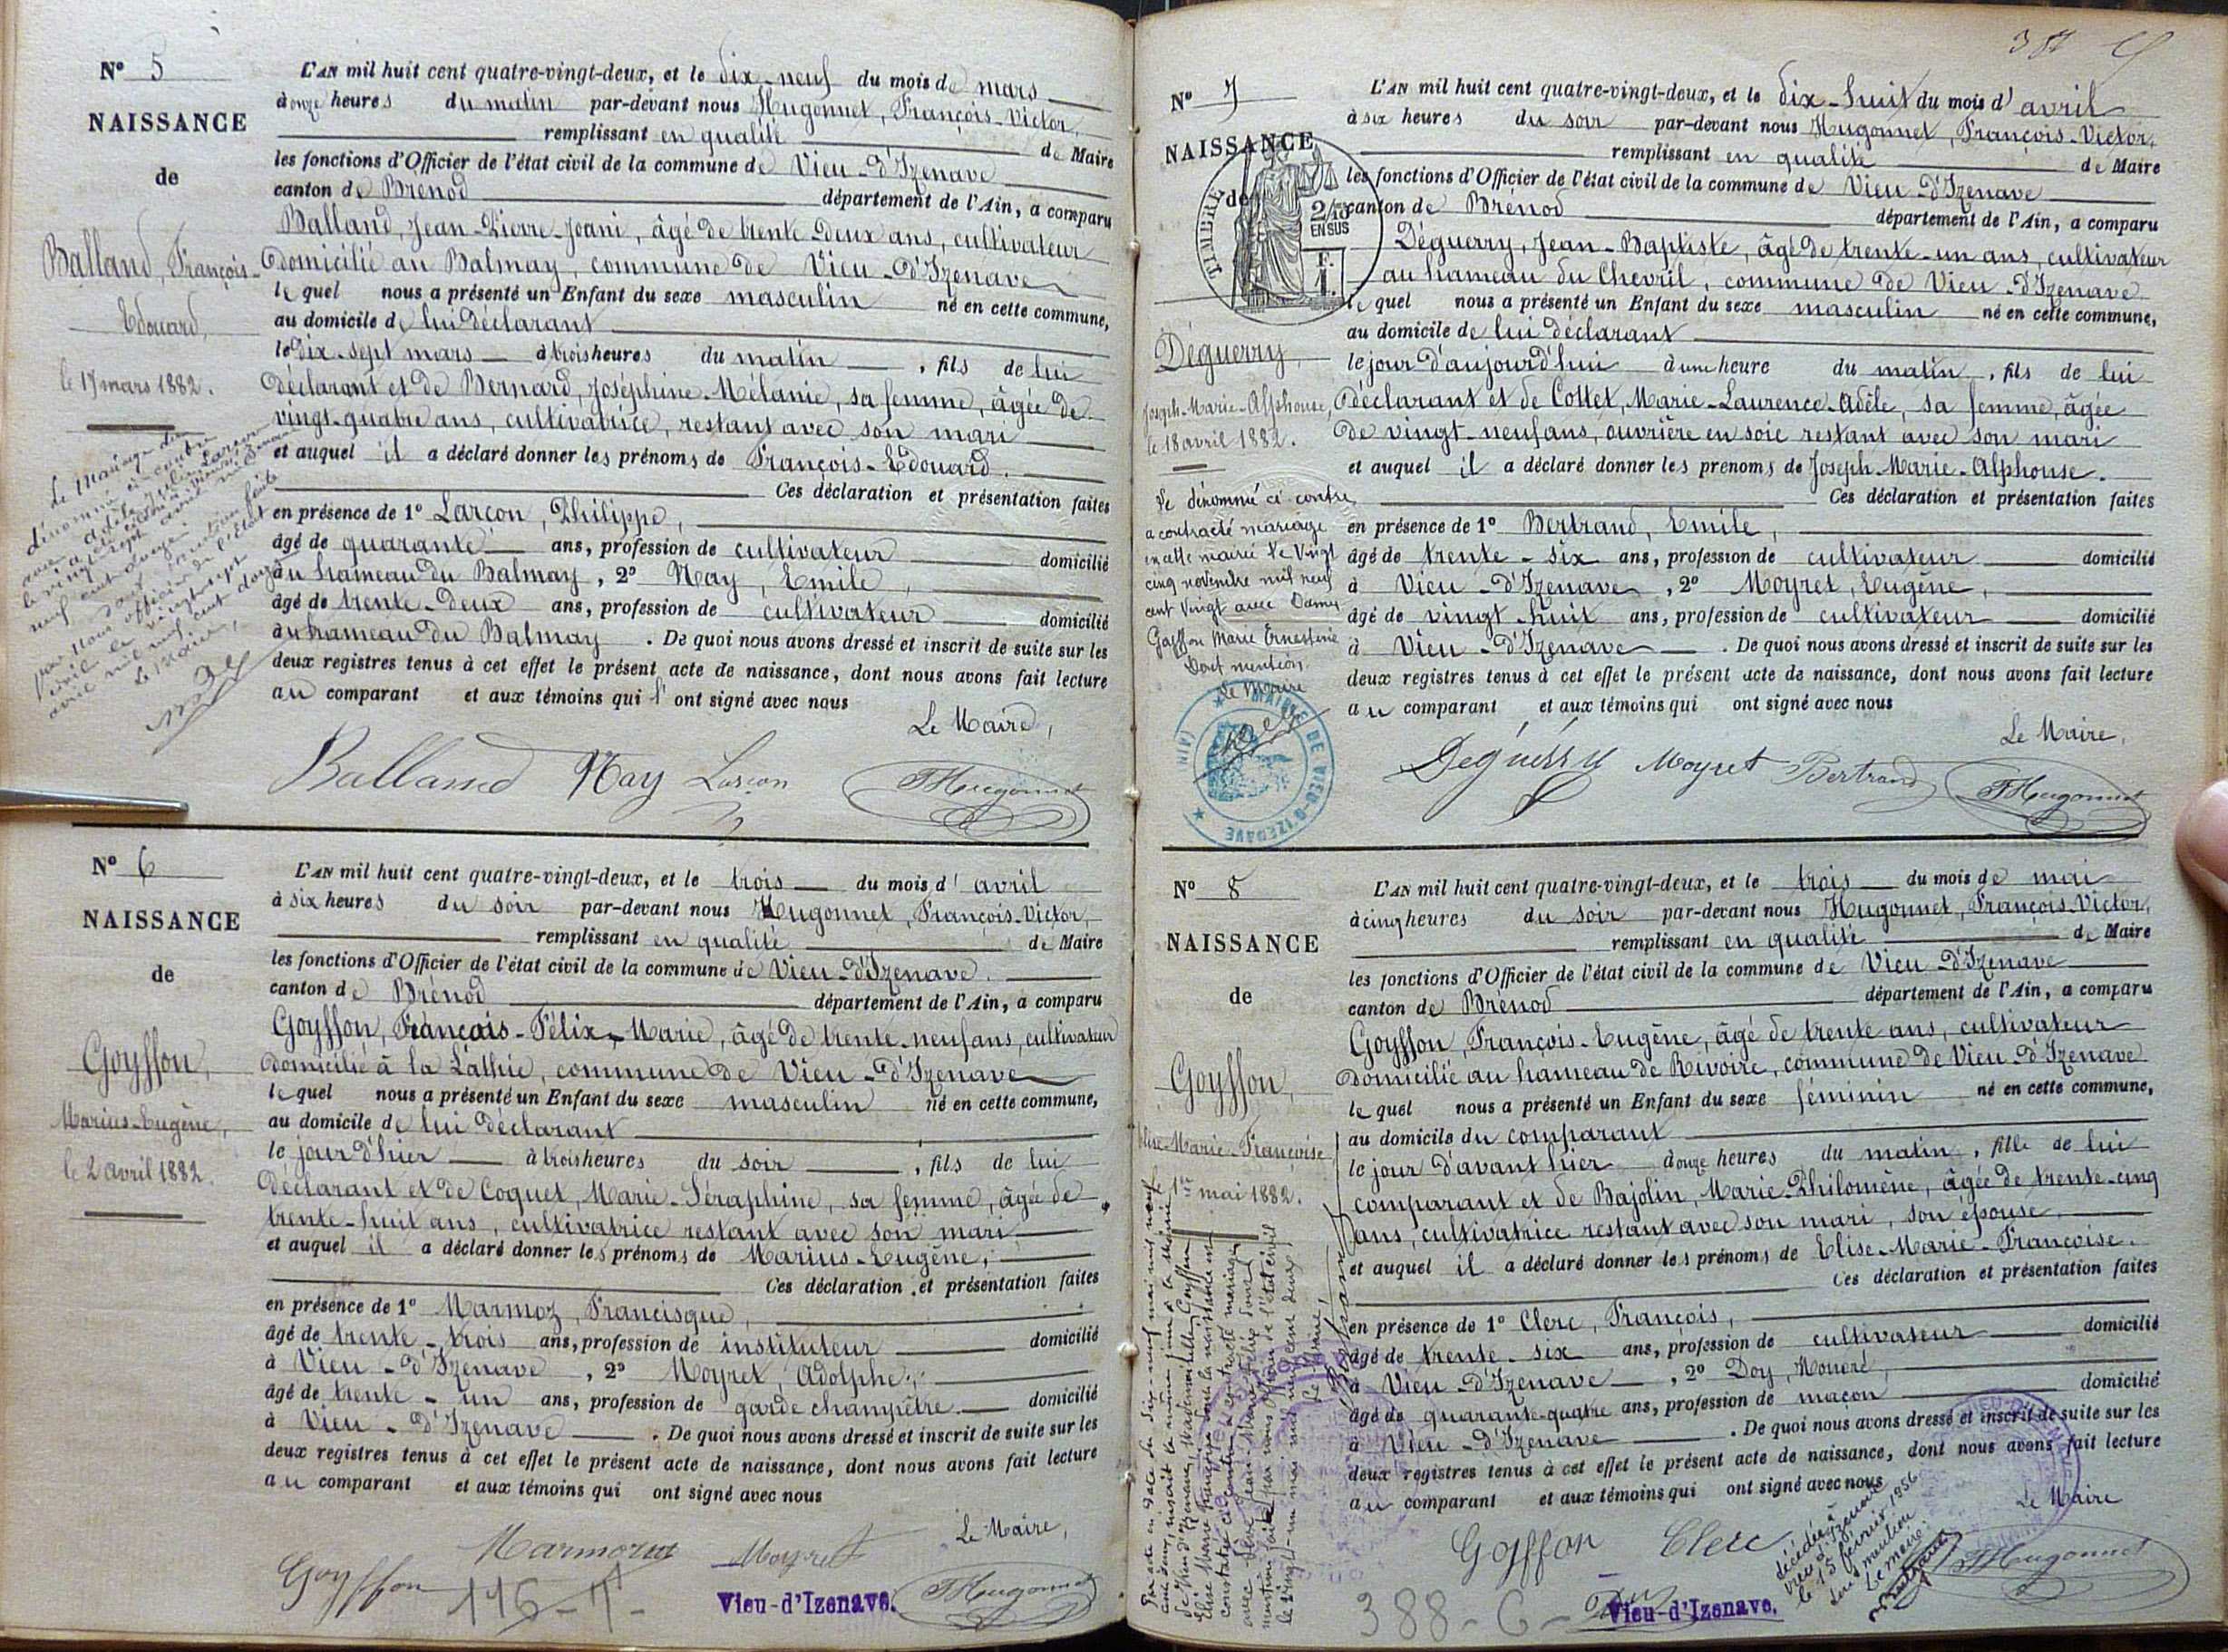 N° 5
NAISSANCE
de
Balland, François-
Edouard,
le 17 mars 1882.
Le mariage du
dénommé ci-contre
avec Larçon
L'AN mil huit cent quatre-vingt-deux, et le dix-neuf du mois de mars
à onze heures du matin par-devant nous Hugonnet, François-Victor,
remplissant en qualité de Maire
les fonctions d'Officier de l'état civil de la commune de Vieu-d'Izenave
canton de Brénod département de l'Ain, a comparu
Balland, Jean-Pierre-Joani, âgé de trente-deux ans, cultivateur
domicilié au Balmay, commune de Vieu-d'Izenave
lequel nous a présenté un Enfant du sexe masculin né en cette commune,
au domicile de lui déclarant
le dix-sept mars à trois heures du matin, fils de lui
déclarant et de Bernard, Joséphine-Mélanie, sa femme, âgée de
vingt-quatre ans, cultivatrice, restant avec son mari
et auquel il a déclaré donner les prénoms de François-Edouard.
Ces déclaration et présentation faites
en présence de 1° Larçon, Philippe,
âgé de quarante ans, profession de cultivateur domicilié
au hameau du Balmay, 2° Nay, Emile,
âgé de trente-deux ans, profession de cultivateur domicilié
au hameau du Balmay. De quoi nous avons dressé et inscrit de suite sur les
deux registres tenus à cet effet le présent acte de naissance, dont nous avons fait lecture
au comparant et aux témoins qui l'ont signé avec nous
Le Maire,
Balland Nay Larçon FHugonnet
N° 6
NAISSANCE
de
Goyffon,
Marius-Eugène,
le 2 avril 1882.
L'AN mil huit cent quatre-vingt-deux, et le trois du mois d'avril
à six heures du soir par-devant nous Hugonnet, François-Victor,
remplissant en qualité de Maire
les fonctions d'Officier de l'état civil de la commune de Vieu-d'Izenave.
canton de Brénod département de l'Ain, a comparu
Goyffon, François-Félix-Marie, âgé de trente-neuf ans, cultivateur
domicilié à la Lèthie, commune de Vieu-d'Izenave
lequel nous a présenté un Enfant du sexe masculin né en cette commune,
au domicile de lui déclarant
le jour d'hier à trois heures du soir, fils de lui
déclarant et de Coquet, Marie-Séraphine, sa femme, âgée de
trente-huit ans, cultivatrice restant avec son mari
et auquel il a déclaré donner les prénoms de Marius-Eugène,
Ces déclaration et présentation faites
en présence de 1° Marmoz, Francisque,
âgé de trente-trois ans, profession de instituteur domicilié
à Vieu-d'Izenave, 2° Moyret, Adolphe,
âgé de trente-un ans, profession de garde champêtre domicilié
à Vieu-d'Izenave. De quoi nous avons dressé et inscrit de suite sur les
deux registres tenus à cet effet le présent acte de naissance, dont nous avons fait lecture
au comparant et aux témoins qui ont signé avec nous
Le Maire,
Goyffon Marmoz Moyret FHugonnet
Vieu-d'Izenave.
N° 7
NAISSANCE
de
TIMBRE
2/10 EN SUS
F. 1.
Déguerry,
Joseph-Marie-Alphonse,
le 18 avril 1882.
Le dénommé ci contre
a contracté mariage
en cette mairie le vingt
cinq novembre mil neuf
cent vingt avec Dame
Goyffon Marie Ernestine
Dont mention
Le Maire
MAIRIE DE VIEU-D'IZENAVE (AIN)
L'AN mil huit cent quatre-vingt-deux, et le dix-huit du mois d'avril
à six heures du soir par-devant nous Hugonnet, François-Victor,
remplissant en qualité de Maire
les fonctions d'Officier de l'état civil de la commune de Vieu-d'Izenave
canton de Brénod département de l'Ain, a comparu
Déguerry, Jean-Baptiste, âgé de trente-un ans, cultivateur
au hameau du Chevril, commune de Vieu-d'Izenave
lequel nous a présenté un Enfant du sexe masculin né en cette commune,
au domicile de lui déclarant
le jour d'aujourd'hui à une heure du matin, fils de lui
déclarant et de Cottet, Marie-Laurence-Adèle, sa femme, âgée
de vingt-neuf ans, ouvrière en soie restant avec son mari
et auquel il a déclaré donner les prénoms de Joseph-Marie-Alphonse.
Ces déclaration et présentation faites
en présence de 1° Bertrand, Emile,
âgé de trente-six ans, profession de cultivateur domicilié
à Vieu-d'Izenave, 2° Moyret, Eugène,
âgé de vingt-huit ans, profession de cultivateur domicilié
à Vieu-d'Izenave. De quoi nous avons dressé et inscrit de suite sur les
deux registres tenus à cet effet le présent acte de naissance, dont nous avons fait lecture
au comparant et aux témoins qui ont signé avec nous
Le Maire,
Deguerry Moyret Bertrand FHugonnet
N° 8
NAISSANCE
de
Goyffon,
Elise-Marie-Françoise
1er mai 1882.
L'AN mil huit cent quatre-vingt-deux, et le trois du mois de mai
à cinq heures du soir par-devant nous Hugonnet, François-Victor,
remplissant en qualité de Maire
les fonctions d'Officier de l'état civil de la commune de Vieu-d'Izenave
canton de Brénod département de l'Ain, a comparu
Goyffon, François-Eugène, âgé de trente ans, cultivateur
domicilié au hameau de Rivoire, commune de Vieu-d'Izenave
lequel nous a présenté un Enfant du sexe féminin né en cette commune,
au domicile du comparant
le jour d'avant hier à onze heures du matin, fille de lui
comparant et de Bajolin, Marie-Philomène, âgée de trente-cinq
ans, cultivatrice restant avec son mari, son épouse.
et auquel il a déclaré donner les prénoms de Elise-Marie-Françoise.
Ces déclaration et présentation faites
en présence de 1° Clerc, François,
âgé de trente-six ans, profession de cultivateur domicilié
à Vieu-d'Izenave, 2° Doy, Honoré,
âgé de quarante-quatre ans, profession de maçon domicilié
à Vieu-d'Izenave. De quoi nous avons dressé et inscrit de suite sur les
deux registres tenus à cet effet le présent acte de naissance, dont nous avons fait lecture
au comparant et aux témoins qui ont signé avec nous
Le Maire
Goyffon Clerc FHugonnet
décédée à
Vieu d'Izenave
le 15 février 1956
dont mention
Le maire.
388-6-
Vieu-d'Izenave.